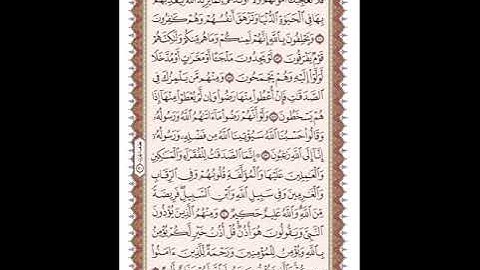 بِهَا فِي ٱلْحَيَوٰةِ ٱلدُّنْيَا وَتَزْهَقَ أَنفُسُهُمْ وَهُمْ كَٰفِرُونَ
وَيَحْلِفُونَ بِٱللَّهِ إِنَّهُمْ لَمِنكُمْ وَمَا هُم مِّنكُمْ وَلَٰكِنَّهُمْ
قَوْمٌ يَفْرَقُونَ لَوْ يَجِدُونَ مَلْجَـًٔا أَوْ مَغَٰرَٰتٍ أَوْ مُدَّخَلًا
لَّوَلَّوْا۟ إِلَيْهِ وَهُمْ يَجْمَحُونَ وَمِنْهُم مَّن يَلْمِزُكَ فِي
ٱلصَّدَقَٰتِ فَإِنْ أُعْطُوا۟ مِنْهَا رَضُوا۟ وَإِن لَّمْ يُعْطَوْا۟ مِنْهَآ إِذَا
هُمْ يَسْخَطُونَ وَلَوْ أَنَّهُمْ رَضُوا۟ مَآ ءَاتَىٰهُمُ ٱللَّهُ وَرَسُولُهُۥ
وَقَالُوا۟ حَسْبُنَا ٱللَّهُ سَيُؤْتِينَا ٱللَّهُ مِن فَضْلِهِۦ وَرَسُولُهُۥٓ
إِنَّآ إِلَى ٱللَّهِ رَٰغِبُونَ إِنَّمَا ٱلصَّدَقَٰتُ لِلْفُقَرَآءِ وَٱلْمَسَٰكِينِ
وَٱلْعَٰمِلِينَ عَلَيْهَا وَٱلْمُؤَلَّفَةِ قُلُوبُهُمْ وَفِي ٱلرِّقَابِ
وَٱلْغَٰرِمِينَ وَفِي سَبِيلِ ٱللَّهِ وَٱبْنِ ٱلسَّبِيلِ فَرِيضَةً
مِّنَ ٱللَّهِ وَٱللَّهُ عَلِيمٌ حَكِيمٌ وَمِنْهُمُ ٱلَّذِينَ يُؤْذُونَ
ٱلنَّبِيَّ وَيَقُولُونَ هُوَ أُذُنٌ قُلْ أُذُنُ خَيْرٍ لَّكُمْ يُؤْمِنُ
بِٱللَّهِ وَيُؤْمِنُ لِلْمُؤْمِنِينَ وَرَحْمَةٌ لِّلَّذِينَ ءَامَنُوا۟